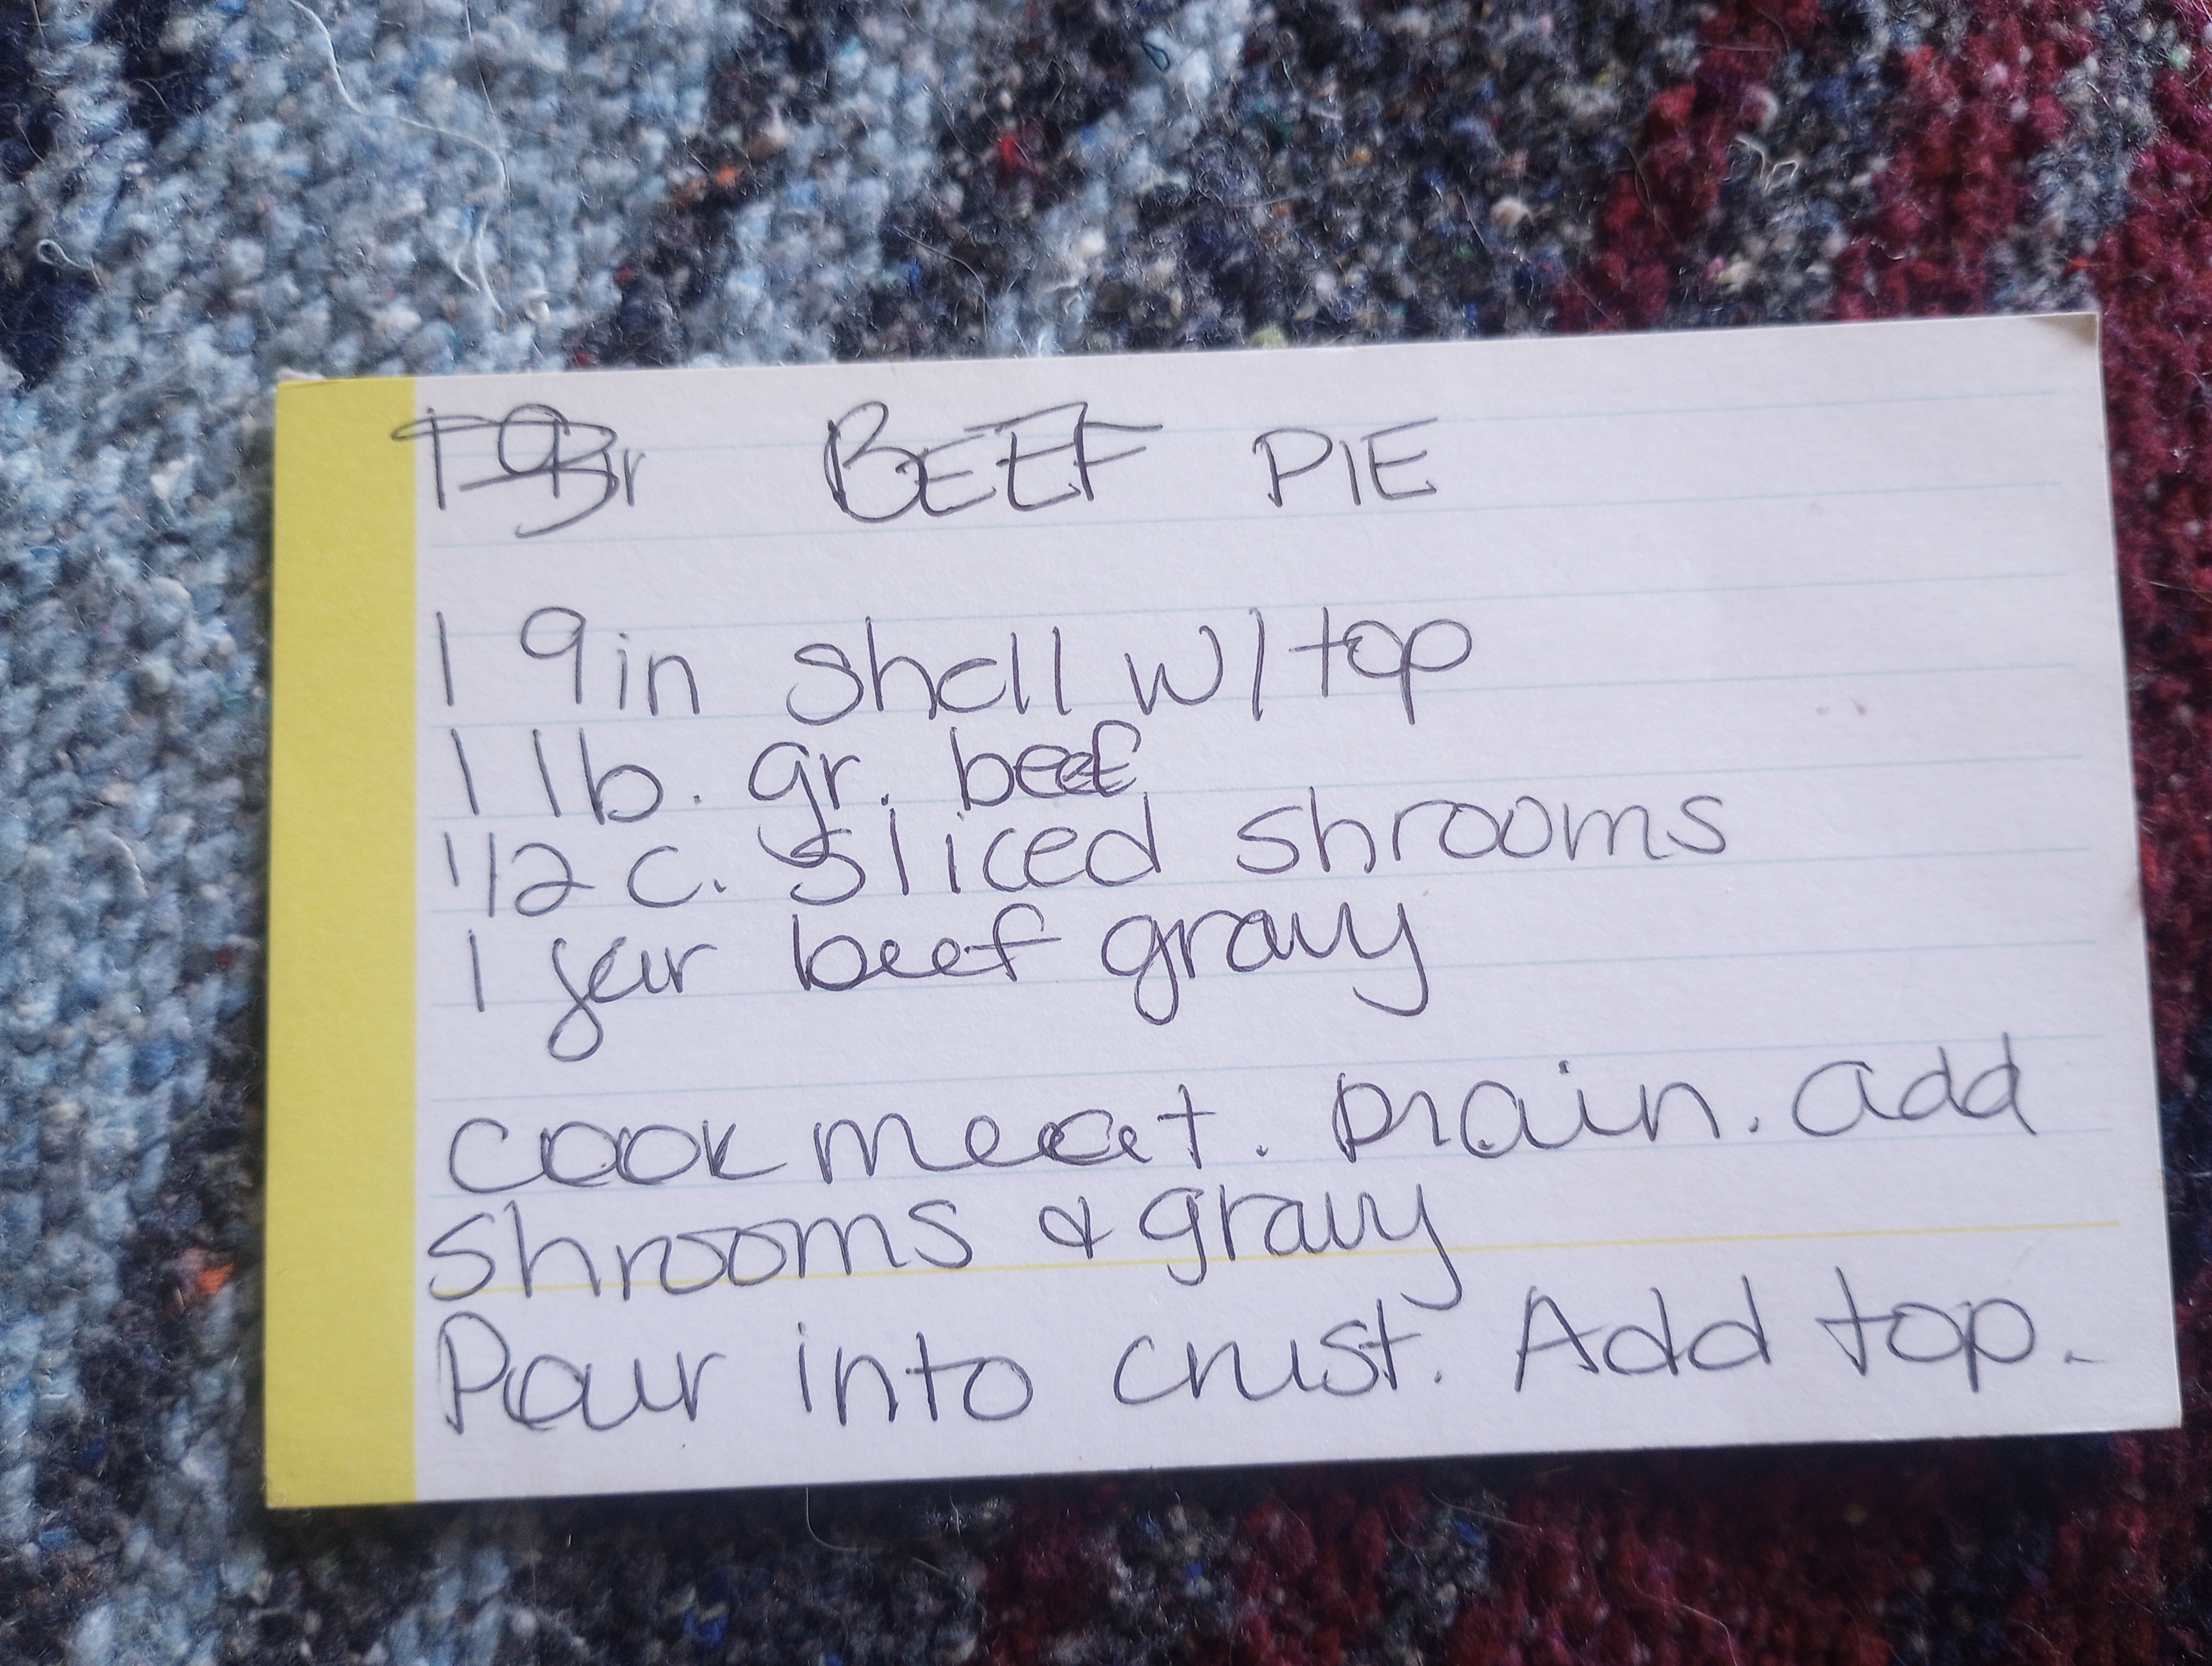 BEEF PIE
1 9in shell w/ top
1 lb. gr. beef
1/2 c. sliced shrooms
1 jar beef gravy
cook meat. Drain. add
shrooms & gravy
Pour into crust. Add top.